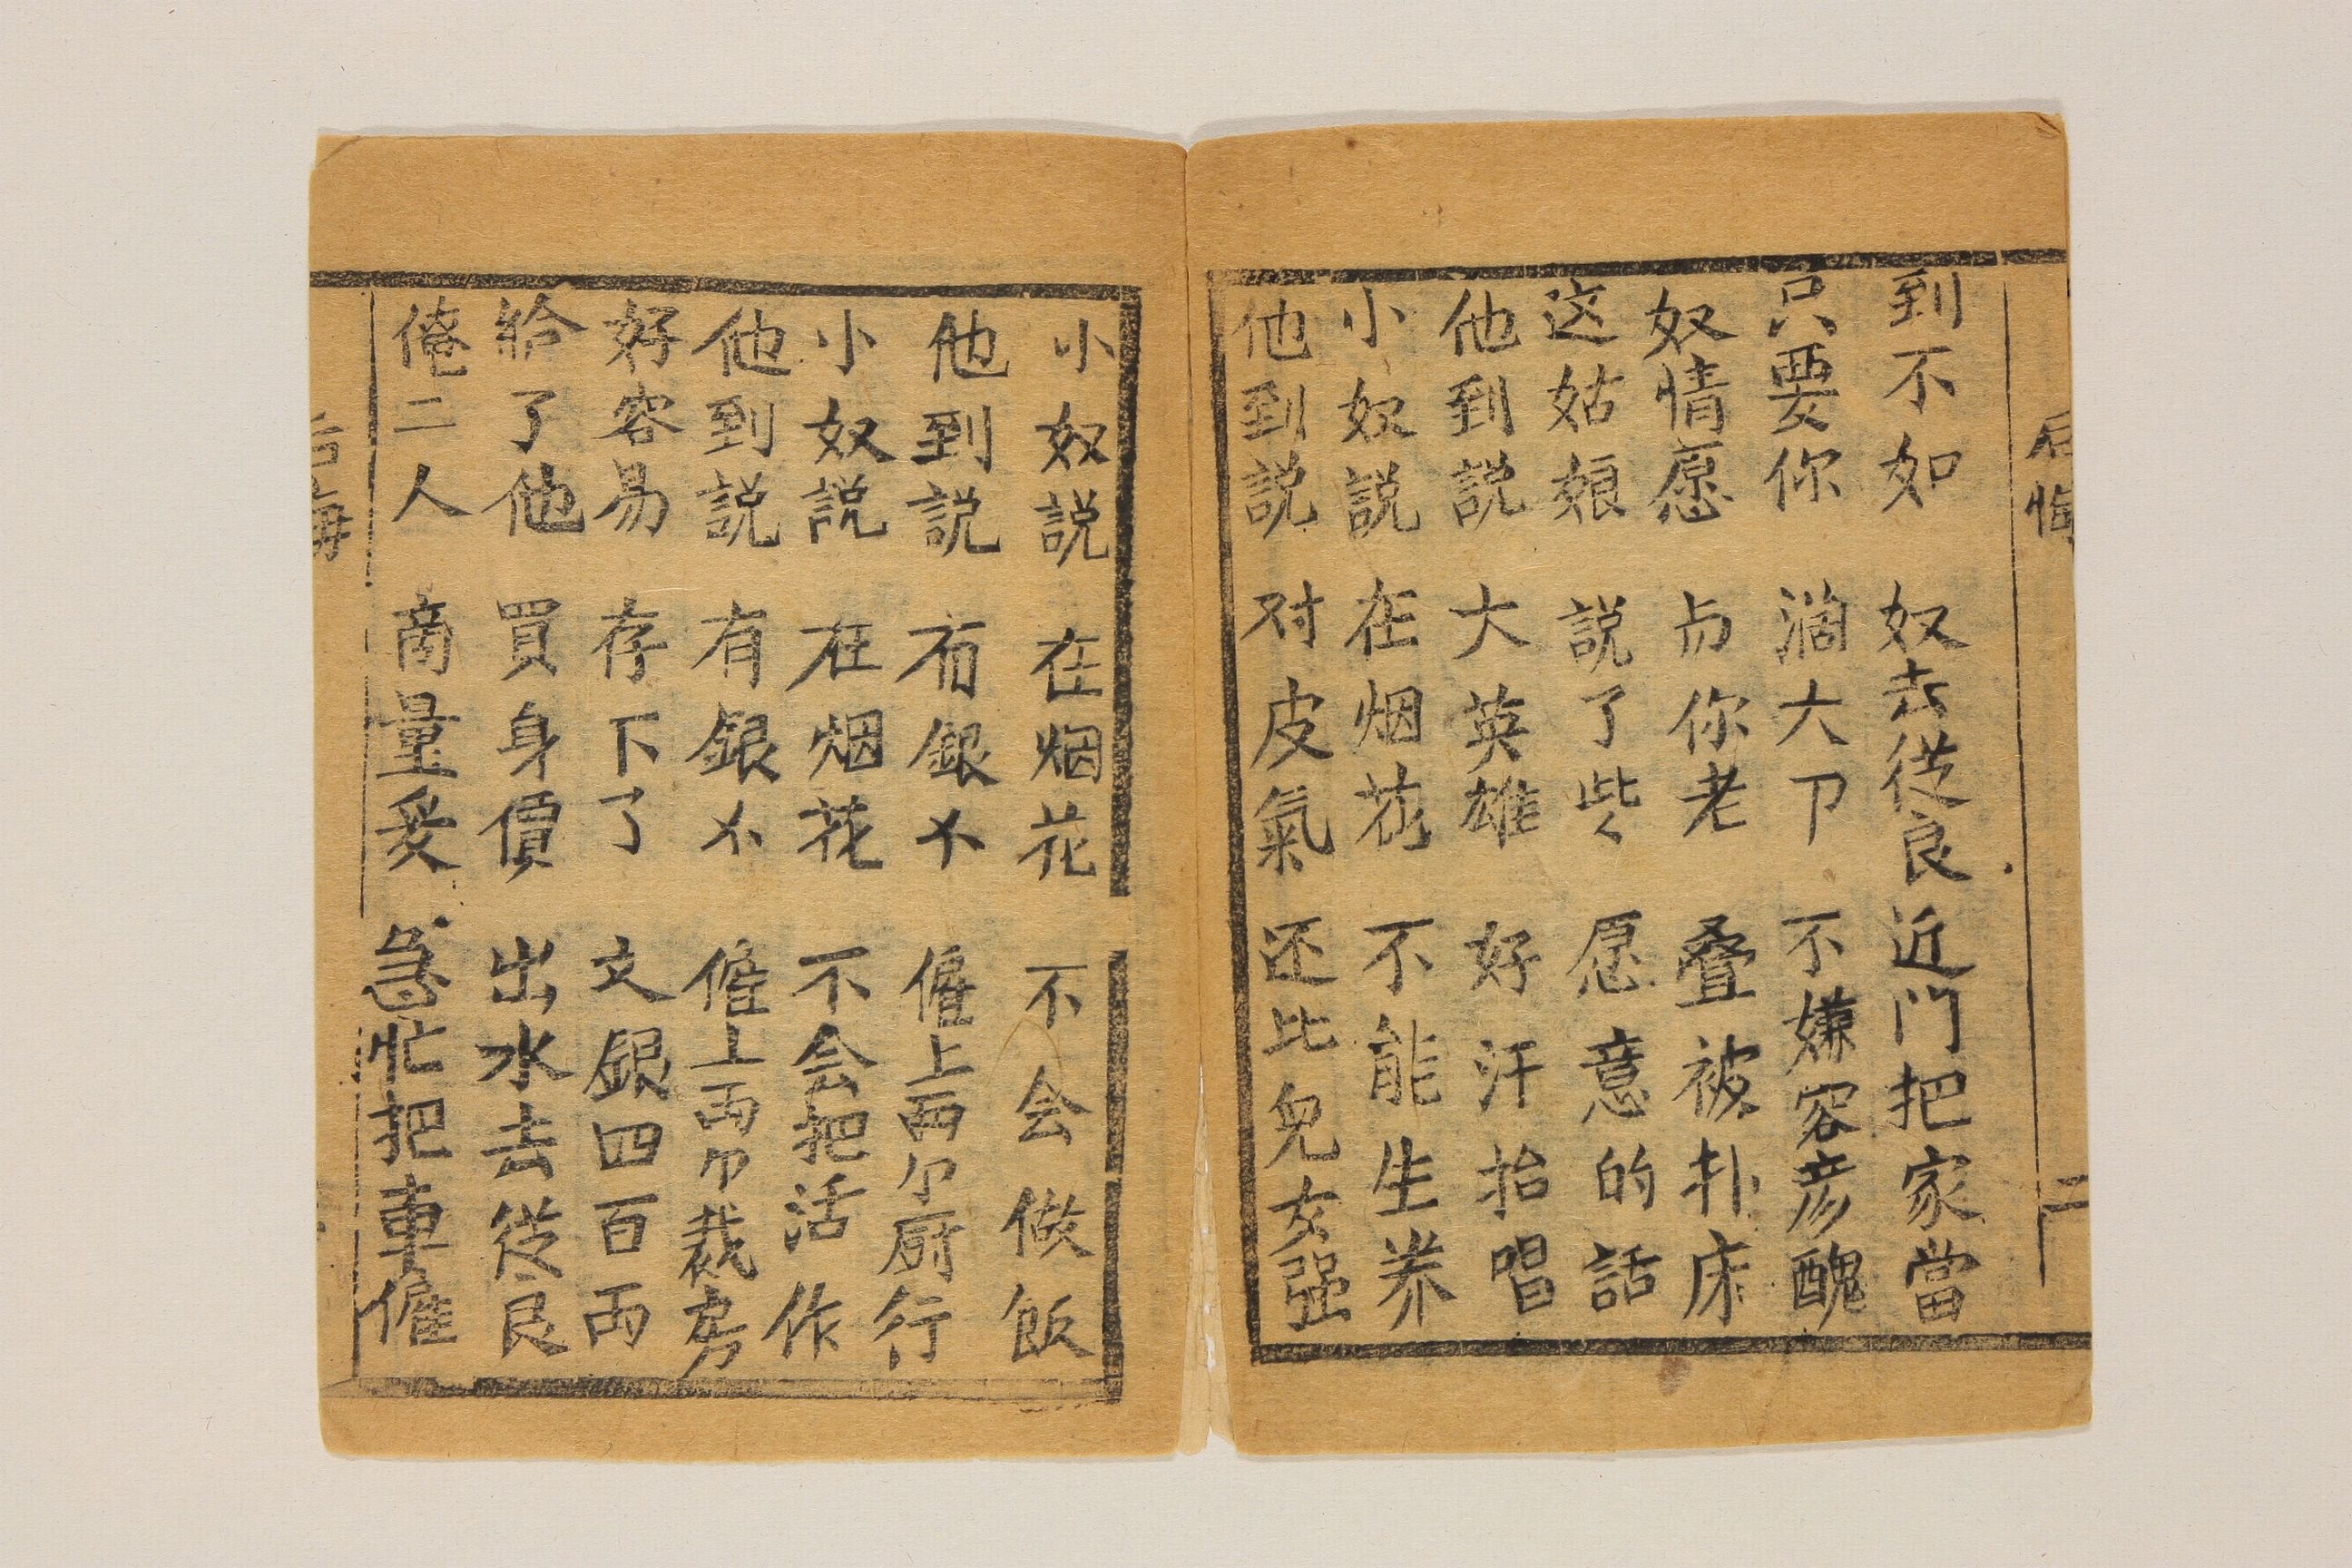 后悔 二
到不如 奴去從良 近门把家當
只要你 濶大卩 不嫌容彦醜
奴情愿 与你老 叠被扑床
这姑娘 説了些 愿意的話
他到説 大英雄 好汗抬唱
小奴説 在烟花 不能生养
他到説 对皮氣 还比兒女强
小奴説 在烟花 不会做飯
他到説 有銀不 僱上两尔厨行
小奴説 在烟花 不会把活作
他到説 有銀不 僱上两尔裁房
好容易 存下了 文銀四百両
給了他 買身價 出水去從良
俺二人 商量妥 急忙把車僱
后悔